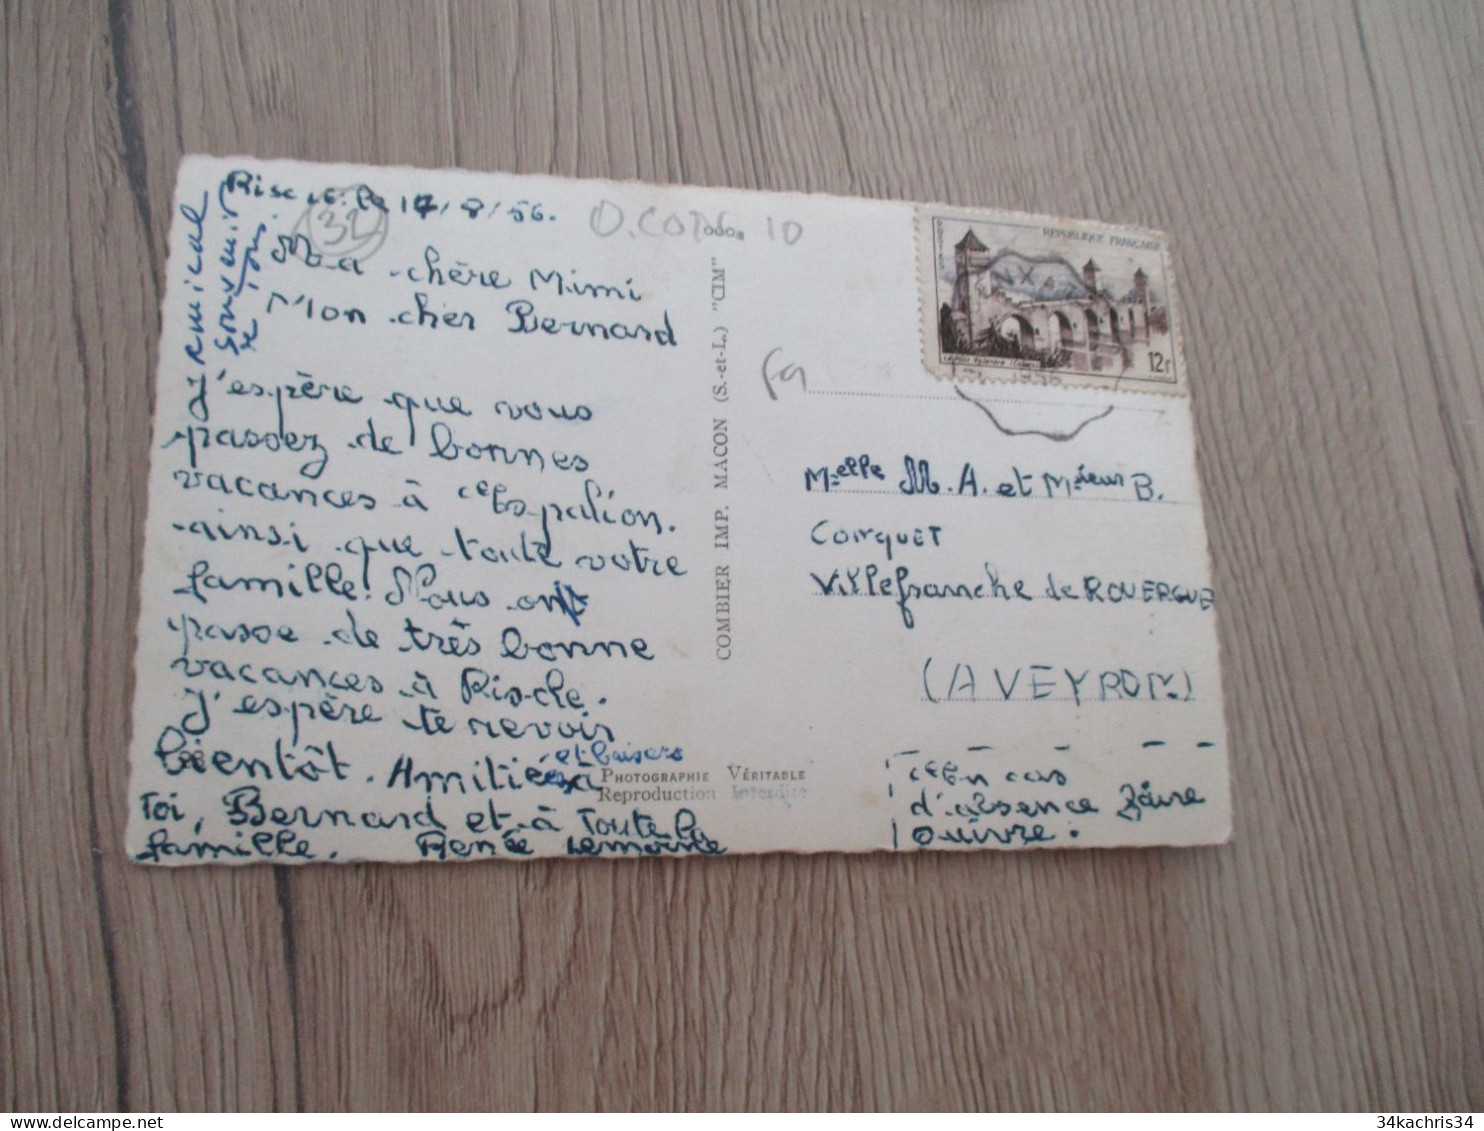 Riscle le 14/8/56.
Ma chère Mimi
Mon cher Bernard
J'espère que vous
passez de bonnes
vacances à Espalion.
ainsi que toute votre
famille. Nous ont
passe de très bonne
vacances à Riscle.
J'espère te revoir
bientôt. Amitiés et baisers à
Toi, Bernard et à Toute la
famille. Renée Lemoine
Amical
Souvenir
32
O.COT
10
COMBIER IMP. MACON (S.-et-L.) "CIM"
PHOTOGRAPHIE VÉRITABLE
Reproduction Interdite
REPUBLIQUE FRANÇAISE
12F
Melle M.A. et Msieur B.
Villefranche de ROUERGUE
(AVEYRON)
En cas
d'absence faire
suivre.
34kachris34